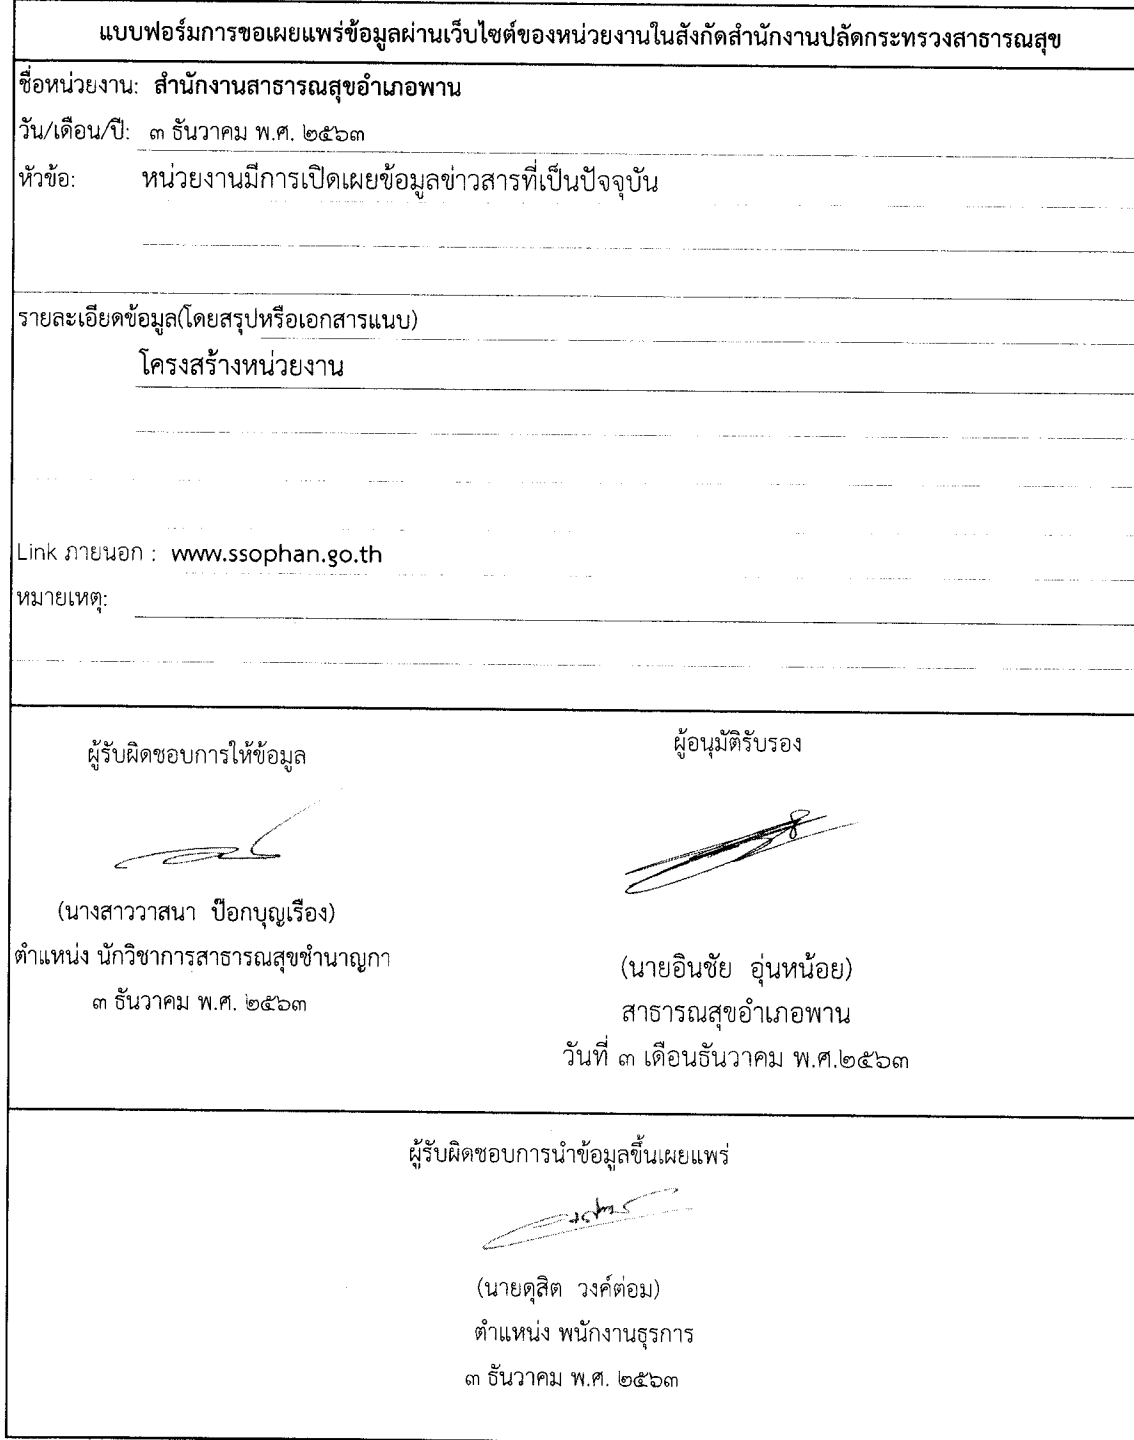 แบบฟอร์มการขอเผยแพร่ข้อมูลผ่านเว็บไซต์ของหน่วยงานในสังกัดสำนักงานปลัดกระทรวงสาธารณสุข
ชื่อหน่วยงาน: สำนักงานสาธารณสุขอำเภอพาน
วัน/เดือน/ปี: ๓ ธันวาคม พ.ศ. ๒๕๖๓
หัวข้อ: หน่วยงานมีการเปิดเผยข้อมูลข่าวสารที่เป็นปัจจุบัน
รายละเอียดข้อมูล(โดยสรุปหรือเอกสารแนบ)
โครงสร้างหน่วยงาน
Link ภายนอก : www.ssophan.go.th
หมายเหตุ:
ผู้รับผิดชอบการให้ข้อมูล
(นางสาววาสนา ป๊อกบุญเรือง)
ตำแหน่ง นักวิชาการสาธารณสุขชำนาญกา
๓ ธันวาคม พ.ศ. ๒๕๖๓
ผู้อนุมัติรับรอง
(นายอินชัย อุ่นหน้อย)
สาธารณสุขอำเภอพาน
วันที่ ๓ เดือนธันวาคม พ.ศ.๒๕๖๓
ผู้รับผิดชอบการนำข้อมูลขึ้นเผยแพร่
(นายดุสิต วงค์ต่อม)
ตำแหน่ง พนักงานธุรการ
๓ ธันวาคม พ.ศ. ๒๕๖๓